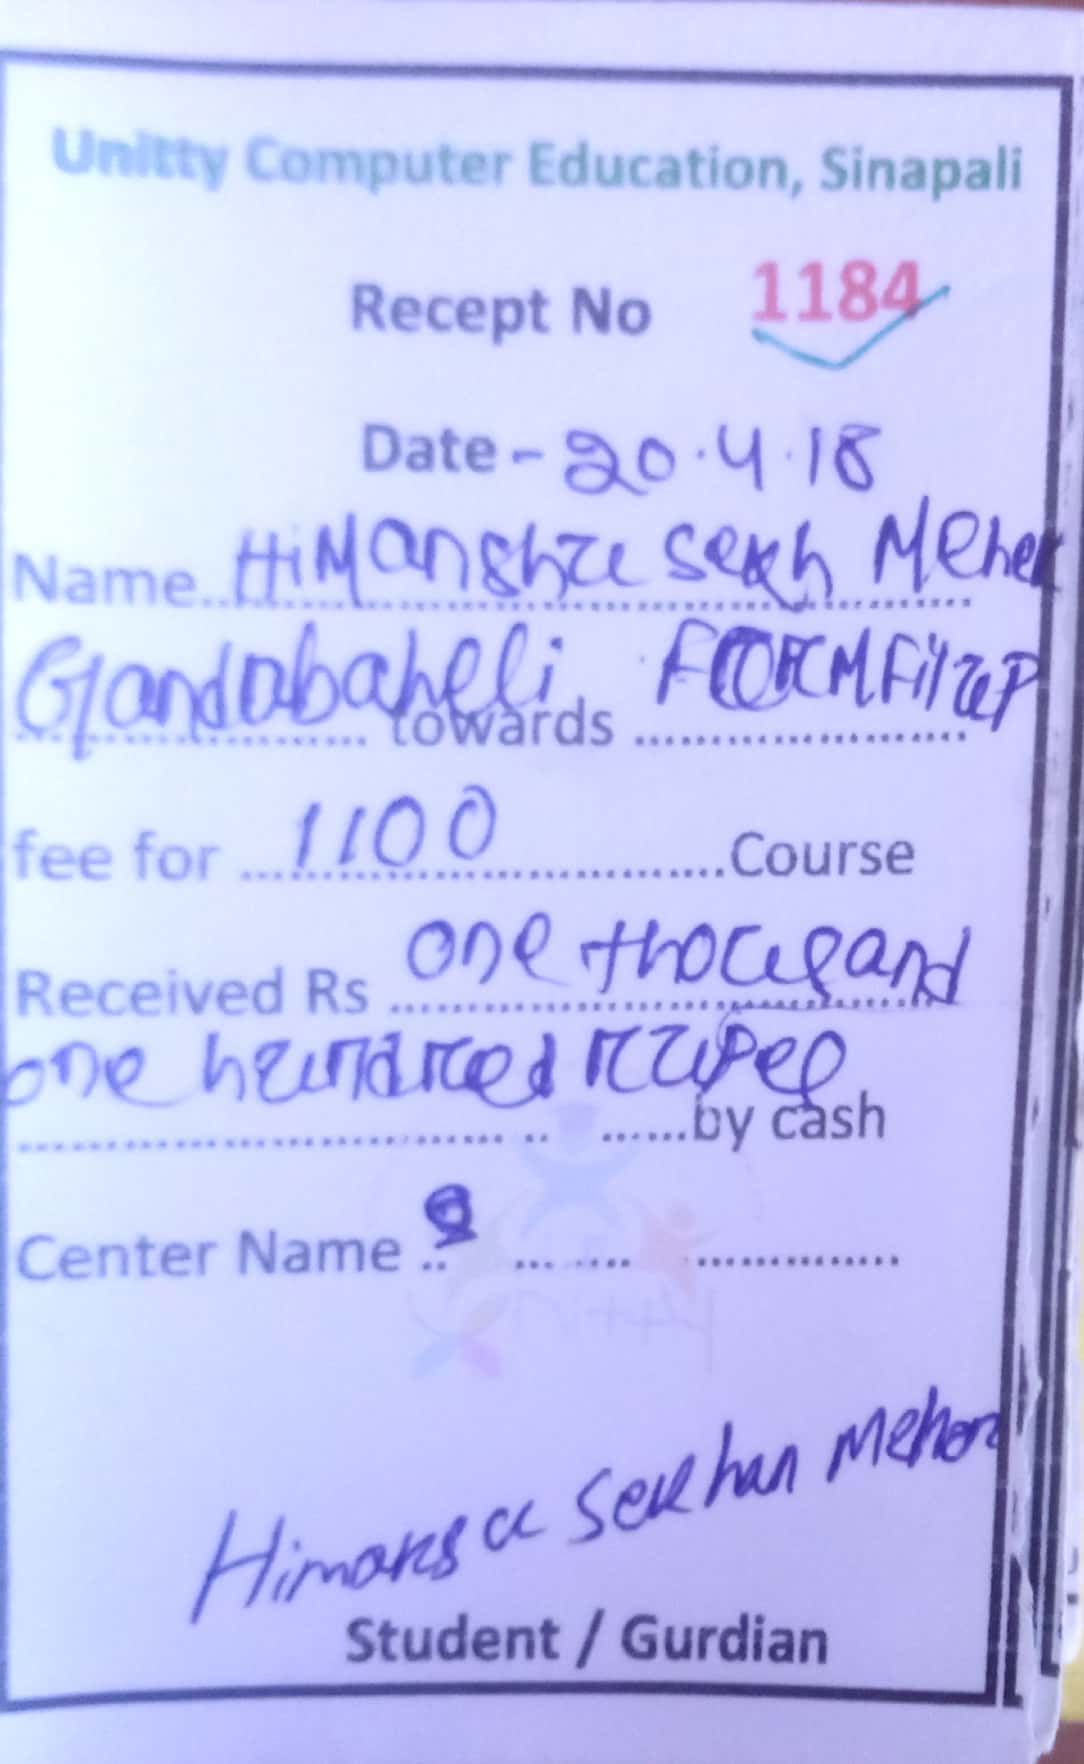 Unitty Computer Education, Sinapali
Recept No 1184
Date - 20.4.18
Name..Himanshu sekh Meher
Gandabaheli towards FORM Fil up
fee for 1100 Course
Received Rs one thousand
one hundred rupees
by cash
Center Name
Himansu Sekhar Meher
Student / Gurdian